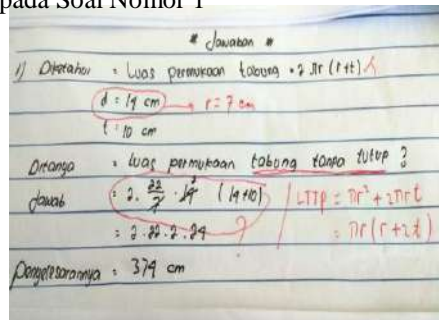 pada Soal Nomor 1
* Jawaban *
1) Diketahui : Luas permukaan tabung = 2 πr (r+t)
d = 14 cm → r = 7 cm
t = 10 cm
Ditanya : Luas permukaan tabung tanpa tutup ?
Jawab : 2. 22/7 . 14 2 (14+10) LTTP = πr² + 2πrt
= 2.22.2.24 ? = πr(r+2t)
: 374 cm